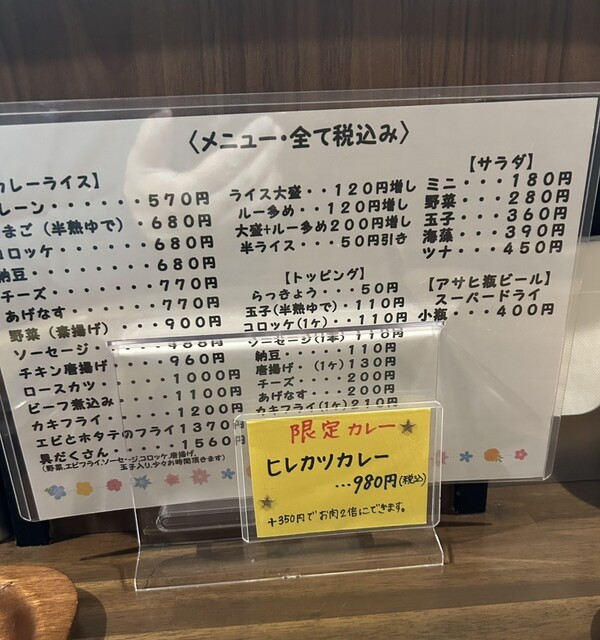 〈メニュー・全て税込み〉
カレーライス】
レーン・・・・・・570円
まご（半熟ゆで）・680円
コロッケ・・・・・680円
納豆・・・・・・・680円
チーズ・・・・・・770円
あげなす・・・・・770円
野菜（素揚げ）・・900円
ソーセージ・・・・
チキン唐揚げ・・・960円
ロースカツ・・・・1000円
ビーフ煮込み・・・1100円
カキフライ・・・・1200円
エビとホタテのフライ1370円
具だくさん・・・・1560円
(野菜、エビフライ、ソーセージ、コロッケ、唐揚げ、
玉子入り、少々お時間頂きます)
ライス大盛・・120円増し
ルー多め・・・120円増し
大盛+ルー多め200円増し
半ライス・・・50円引き
【トッピング】
らっきょう・・・50円
玉子（半熟ゆで）・110円
コロッケ（1ヶ）・・110円
ソーセージ（1本）
納豆・・・・・・110円
唐揚げ・（1ヶ）130円
チーズ・・・・・200円
あげなす・・・・200円
カキフライ（1ヶ）210円
【サラダ】
ミニ・・・・180円
野菜・・・・280円
玉子・・・・360円
海藻・・・・390円
ツナ・・・・450円
【アサヒ瓶ビール】
スーパードライ
小瓶・・・400円
限定カレー★
ヒレカツカレー
…980円(税込)
+350円でお肉2倍にできます。